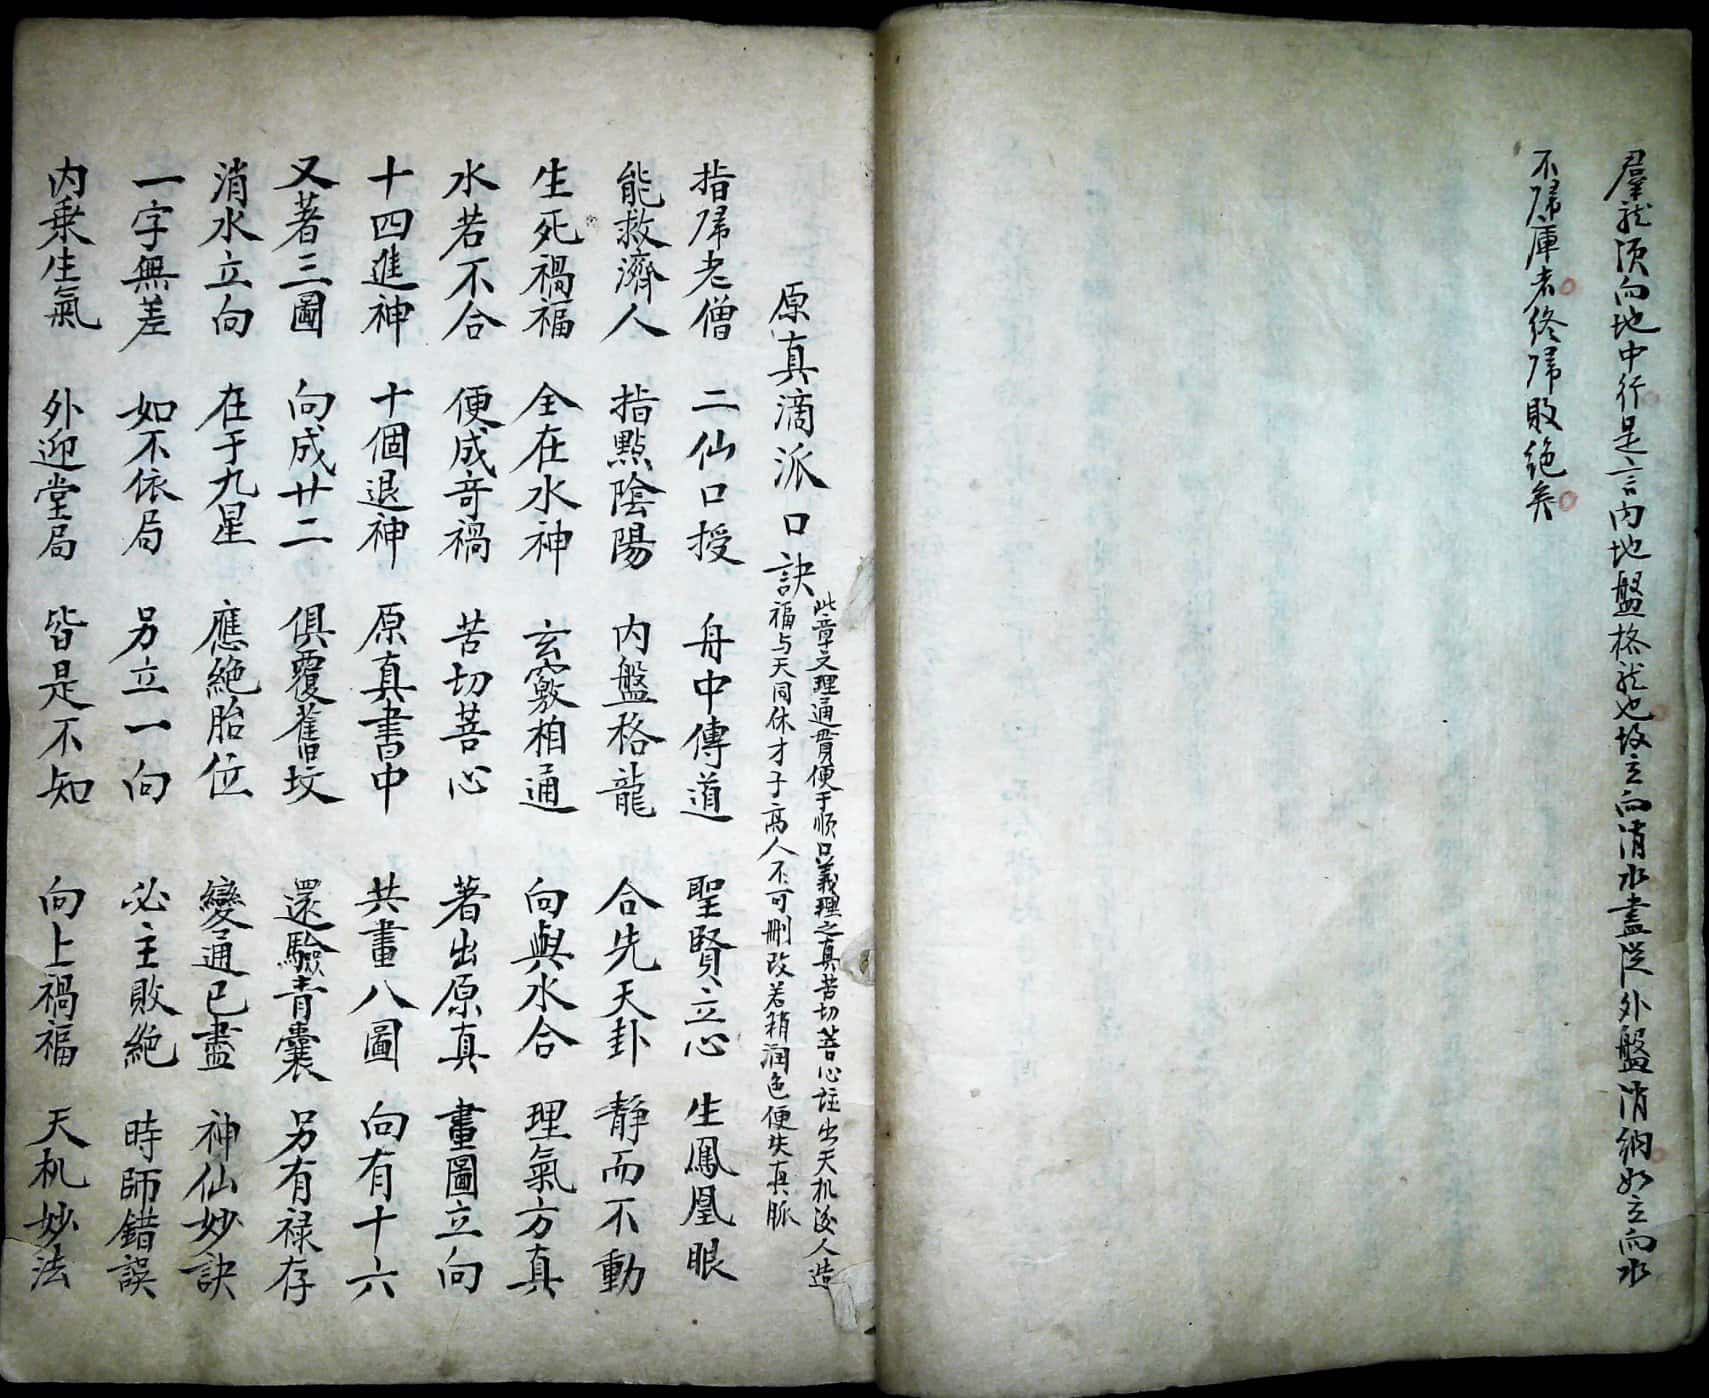 羣龍須向地中行是言内地盤格龍也故立向消水盡從外盤消納如立向水
不歸庫者終歸敗絶矣
原真滴派口訣
此章文理通貫便于順口義理之真苦切菩心註出天机後人造
福与天同休才子高人不可刪改若稍潤色便失真脈
指歸老僧 二仙口授 舟中傳道 聖賢立心 生鳳凰眼
能救濟人 指點陰陽 内盤格龍 合先天卦 靜而不動
生死禍福 全在水神 玄竅相通 向與水合 理氣方真
水若不合 便成竒禍 苦切菩心 著出原真 畫圖立向
十四進神 十個退神 原真書中 共畫八圖 向有十六
又著三圖 向成廿二 俱覆舊坟 還驗青囊 另有禄存
消水立向 在于九星 應絶胎位 變通已盡 神仙妙訣
一字無差 如不依局 另立一向 必主敗絶 時師錯誤
内乗生氣 外迎堂局 皆是不知 向上禍福 天机妙法